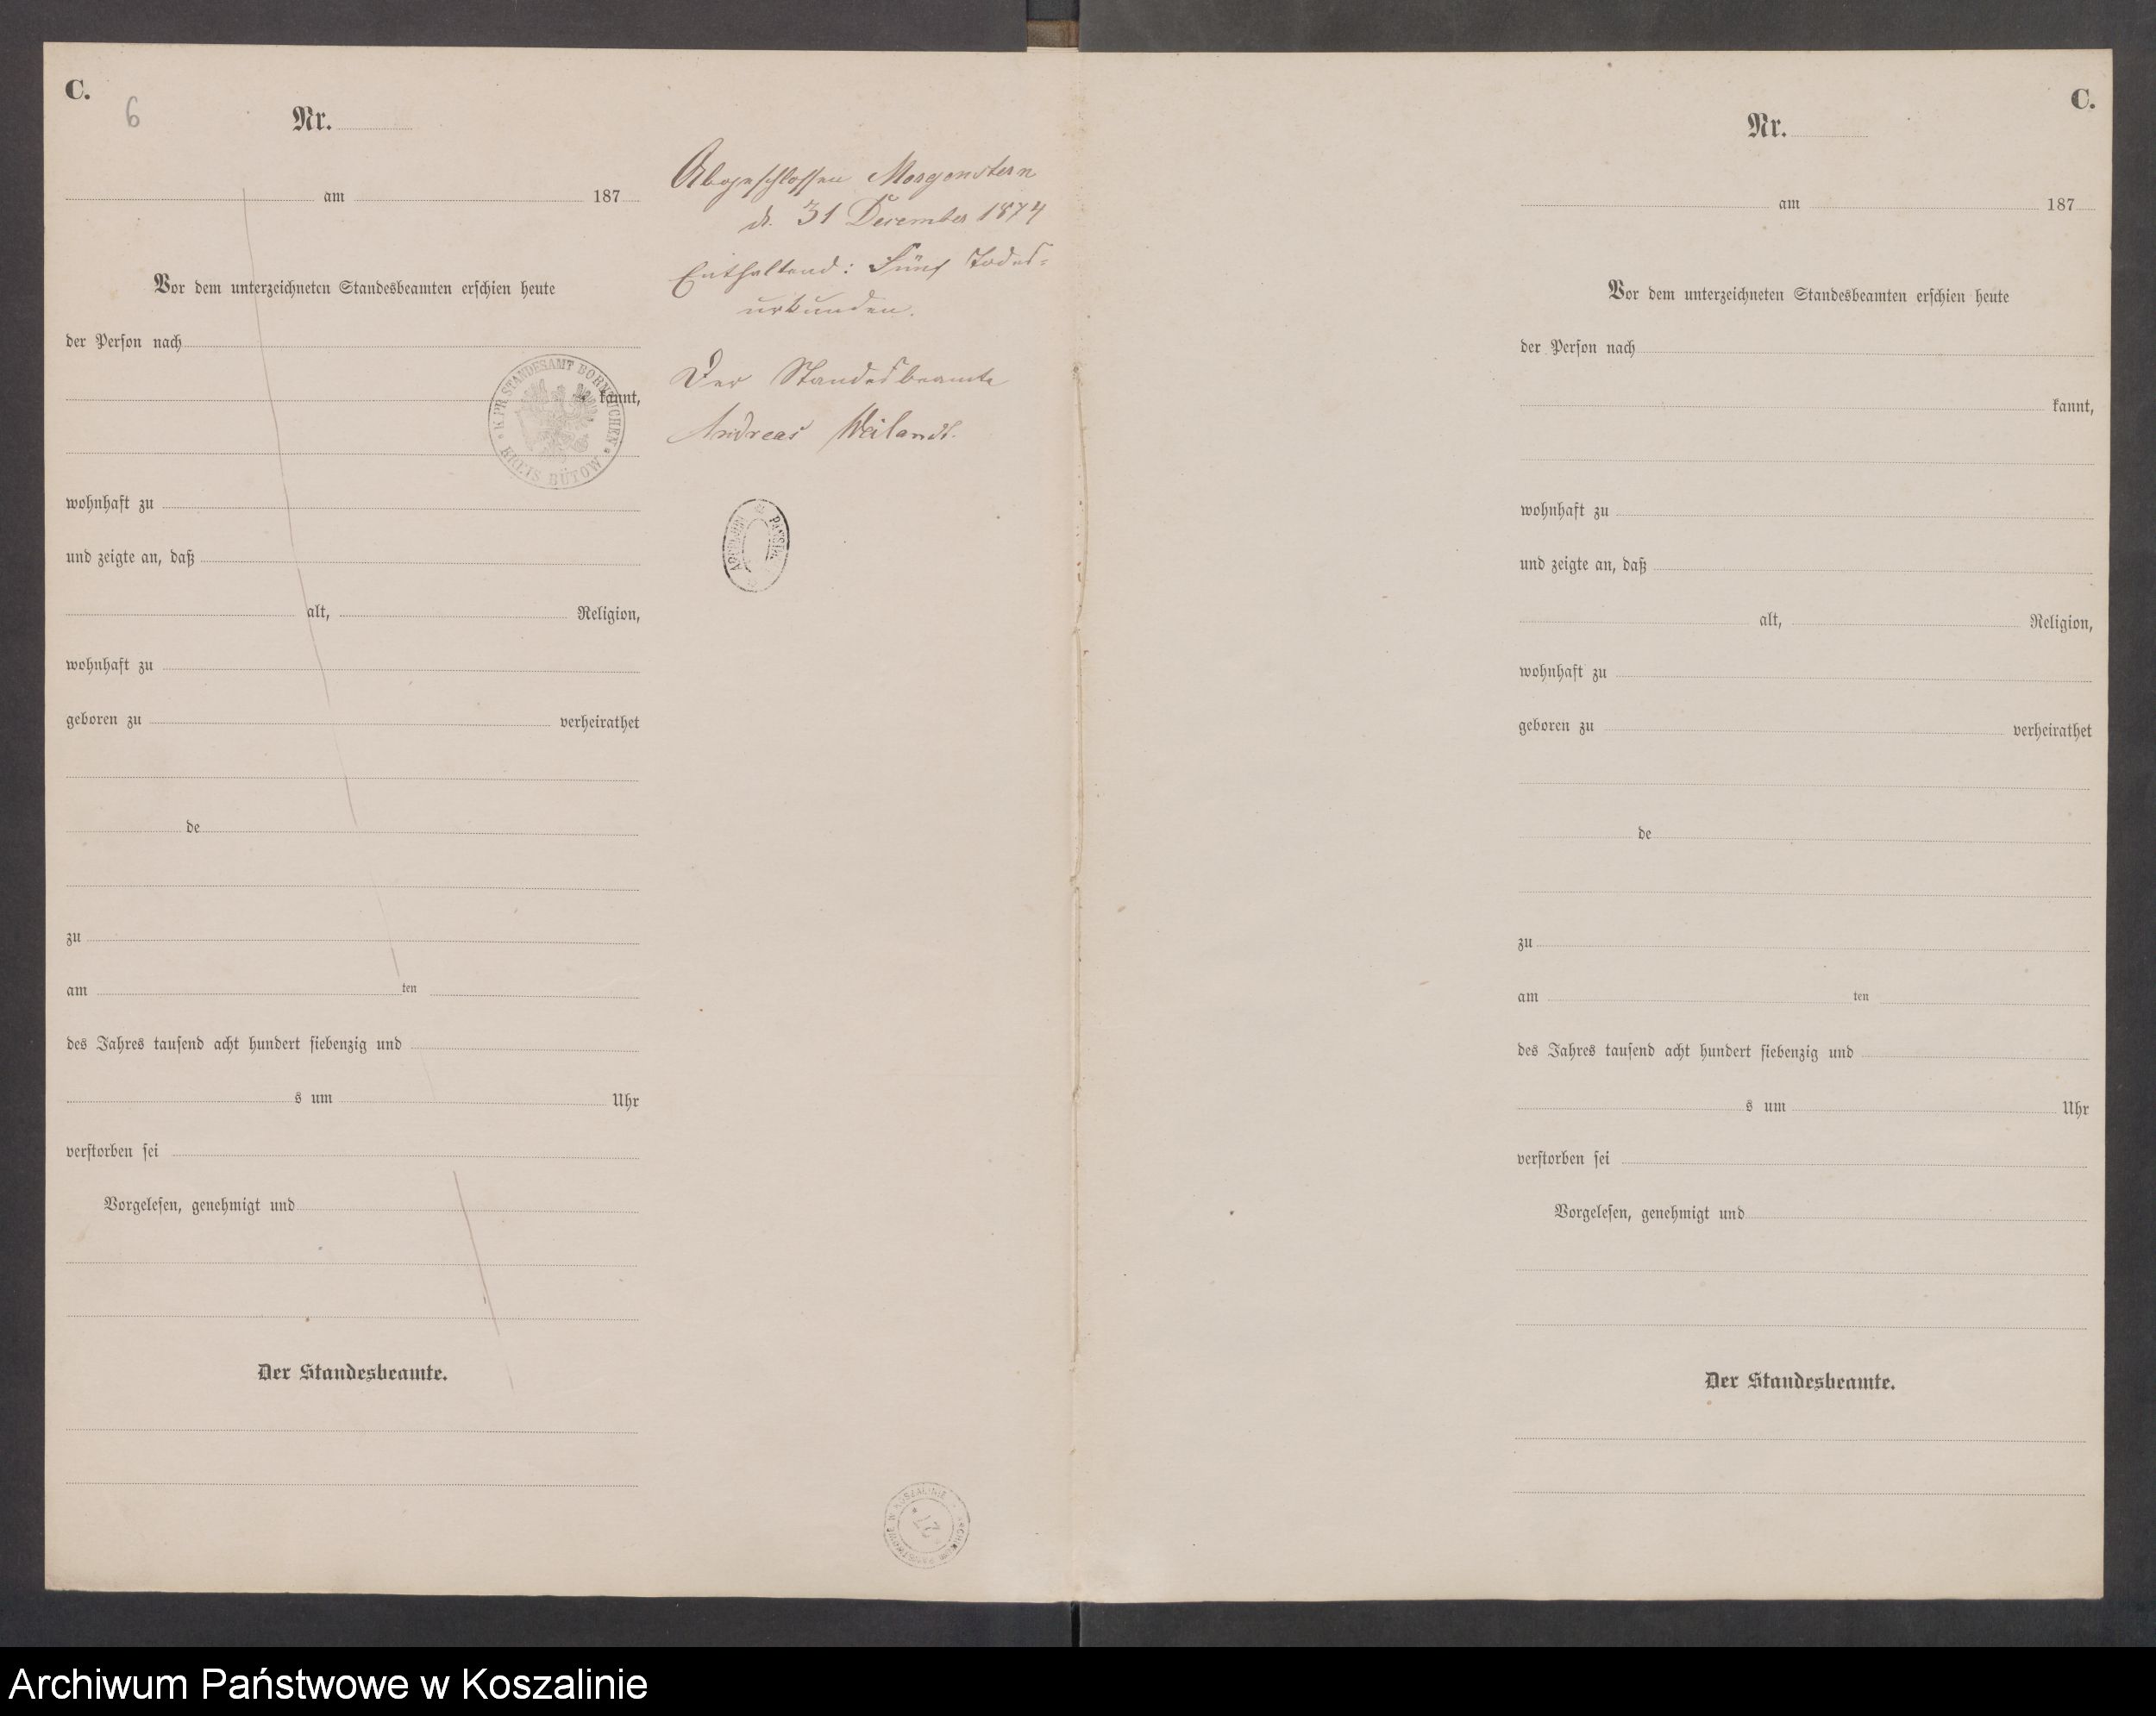 C.
6
Nr.
am 187
Vor dem unterzeichneten Standesbeamten erschien heute
der Person nach
kannt,
wohnhaft zu
und zeigte an, daß
alt, Religion,
wohnhaft zu
geboren zu verheirathet
de
zu
am ten
des Jahres tausend acht hundert siebenzig und
s um Uhr
verstorben sei
Vorgelesen, genehmigt und
Der Standesbeamte.
K. PR. STANDESAMT BORNTUCHEN
KREIS BÜTOW
Abgeschlossen Morgenstern
d. 31 December 1874
Enthaltend: Fünf Todes-
urkunden.
Der Standesbeamte
Andreas Weilandt.
KOSZALINIE
27
C.
Nr.
am 187
Vor dem unterzeichneten Standesbeamten erschien heute
der Person nach
kannt,
wohnhaft zu
und zeigte an, daß
alt, Religion,
wohnhaft zu
geboren zu verheirathet
de
zu
am ten
des Jahres tausend acht hundert siebenzig und
s um Uhr
verstorben sei
Vorgelesen, genehmigt und
Der Standesbeamte.
Archiwum Państwowe w Koszalinie